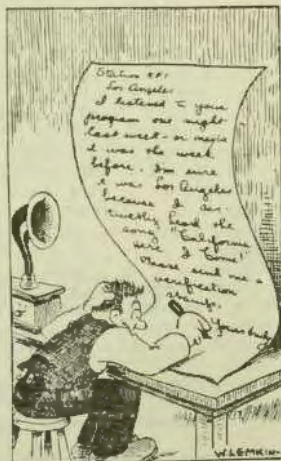 Station KFI
Los Angeles
I listened to your
program one night
last week - or maybe
it was the week
before. I'm sure
it was Los Angeles
because I dis-
tinctly heard the
song "California
Here I Come!"
Please send me a
verification
stamp.
Yours truly
W.LEMKIN-